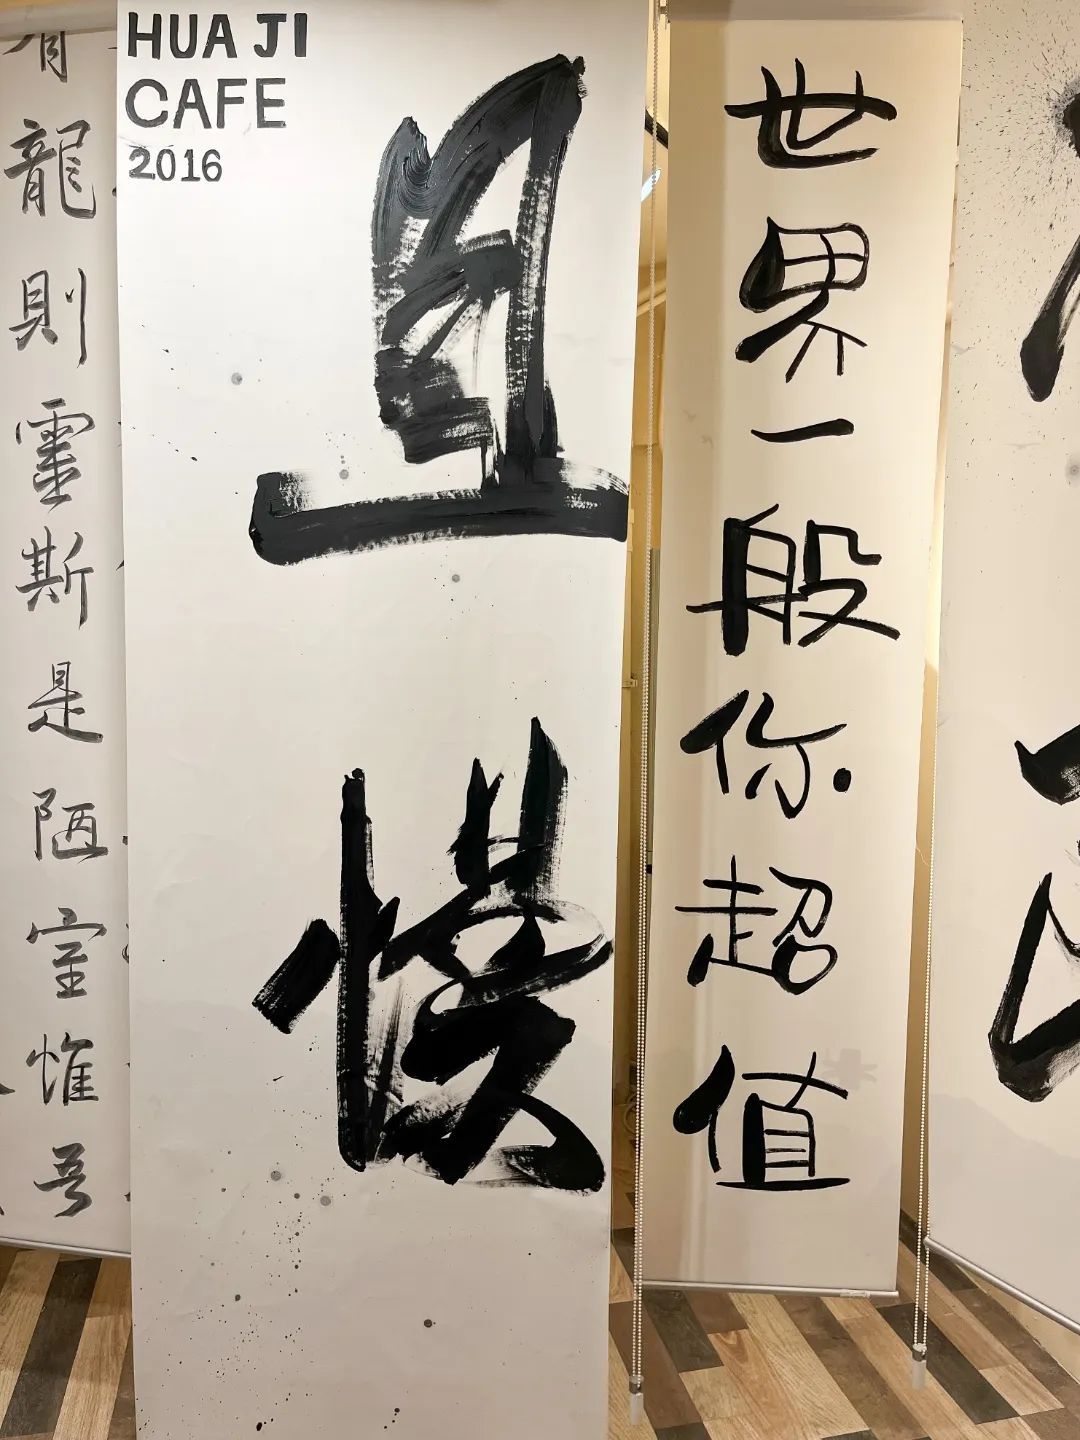 有龍則靈斯是陋室惟吾
HUA JI
CAFE
2016
且慢
世界一般你超值